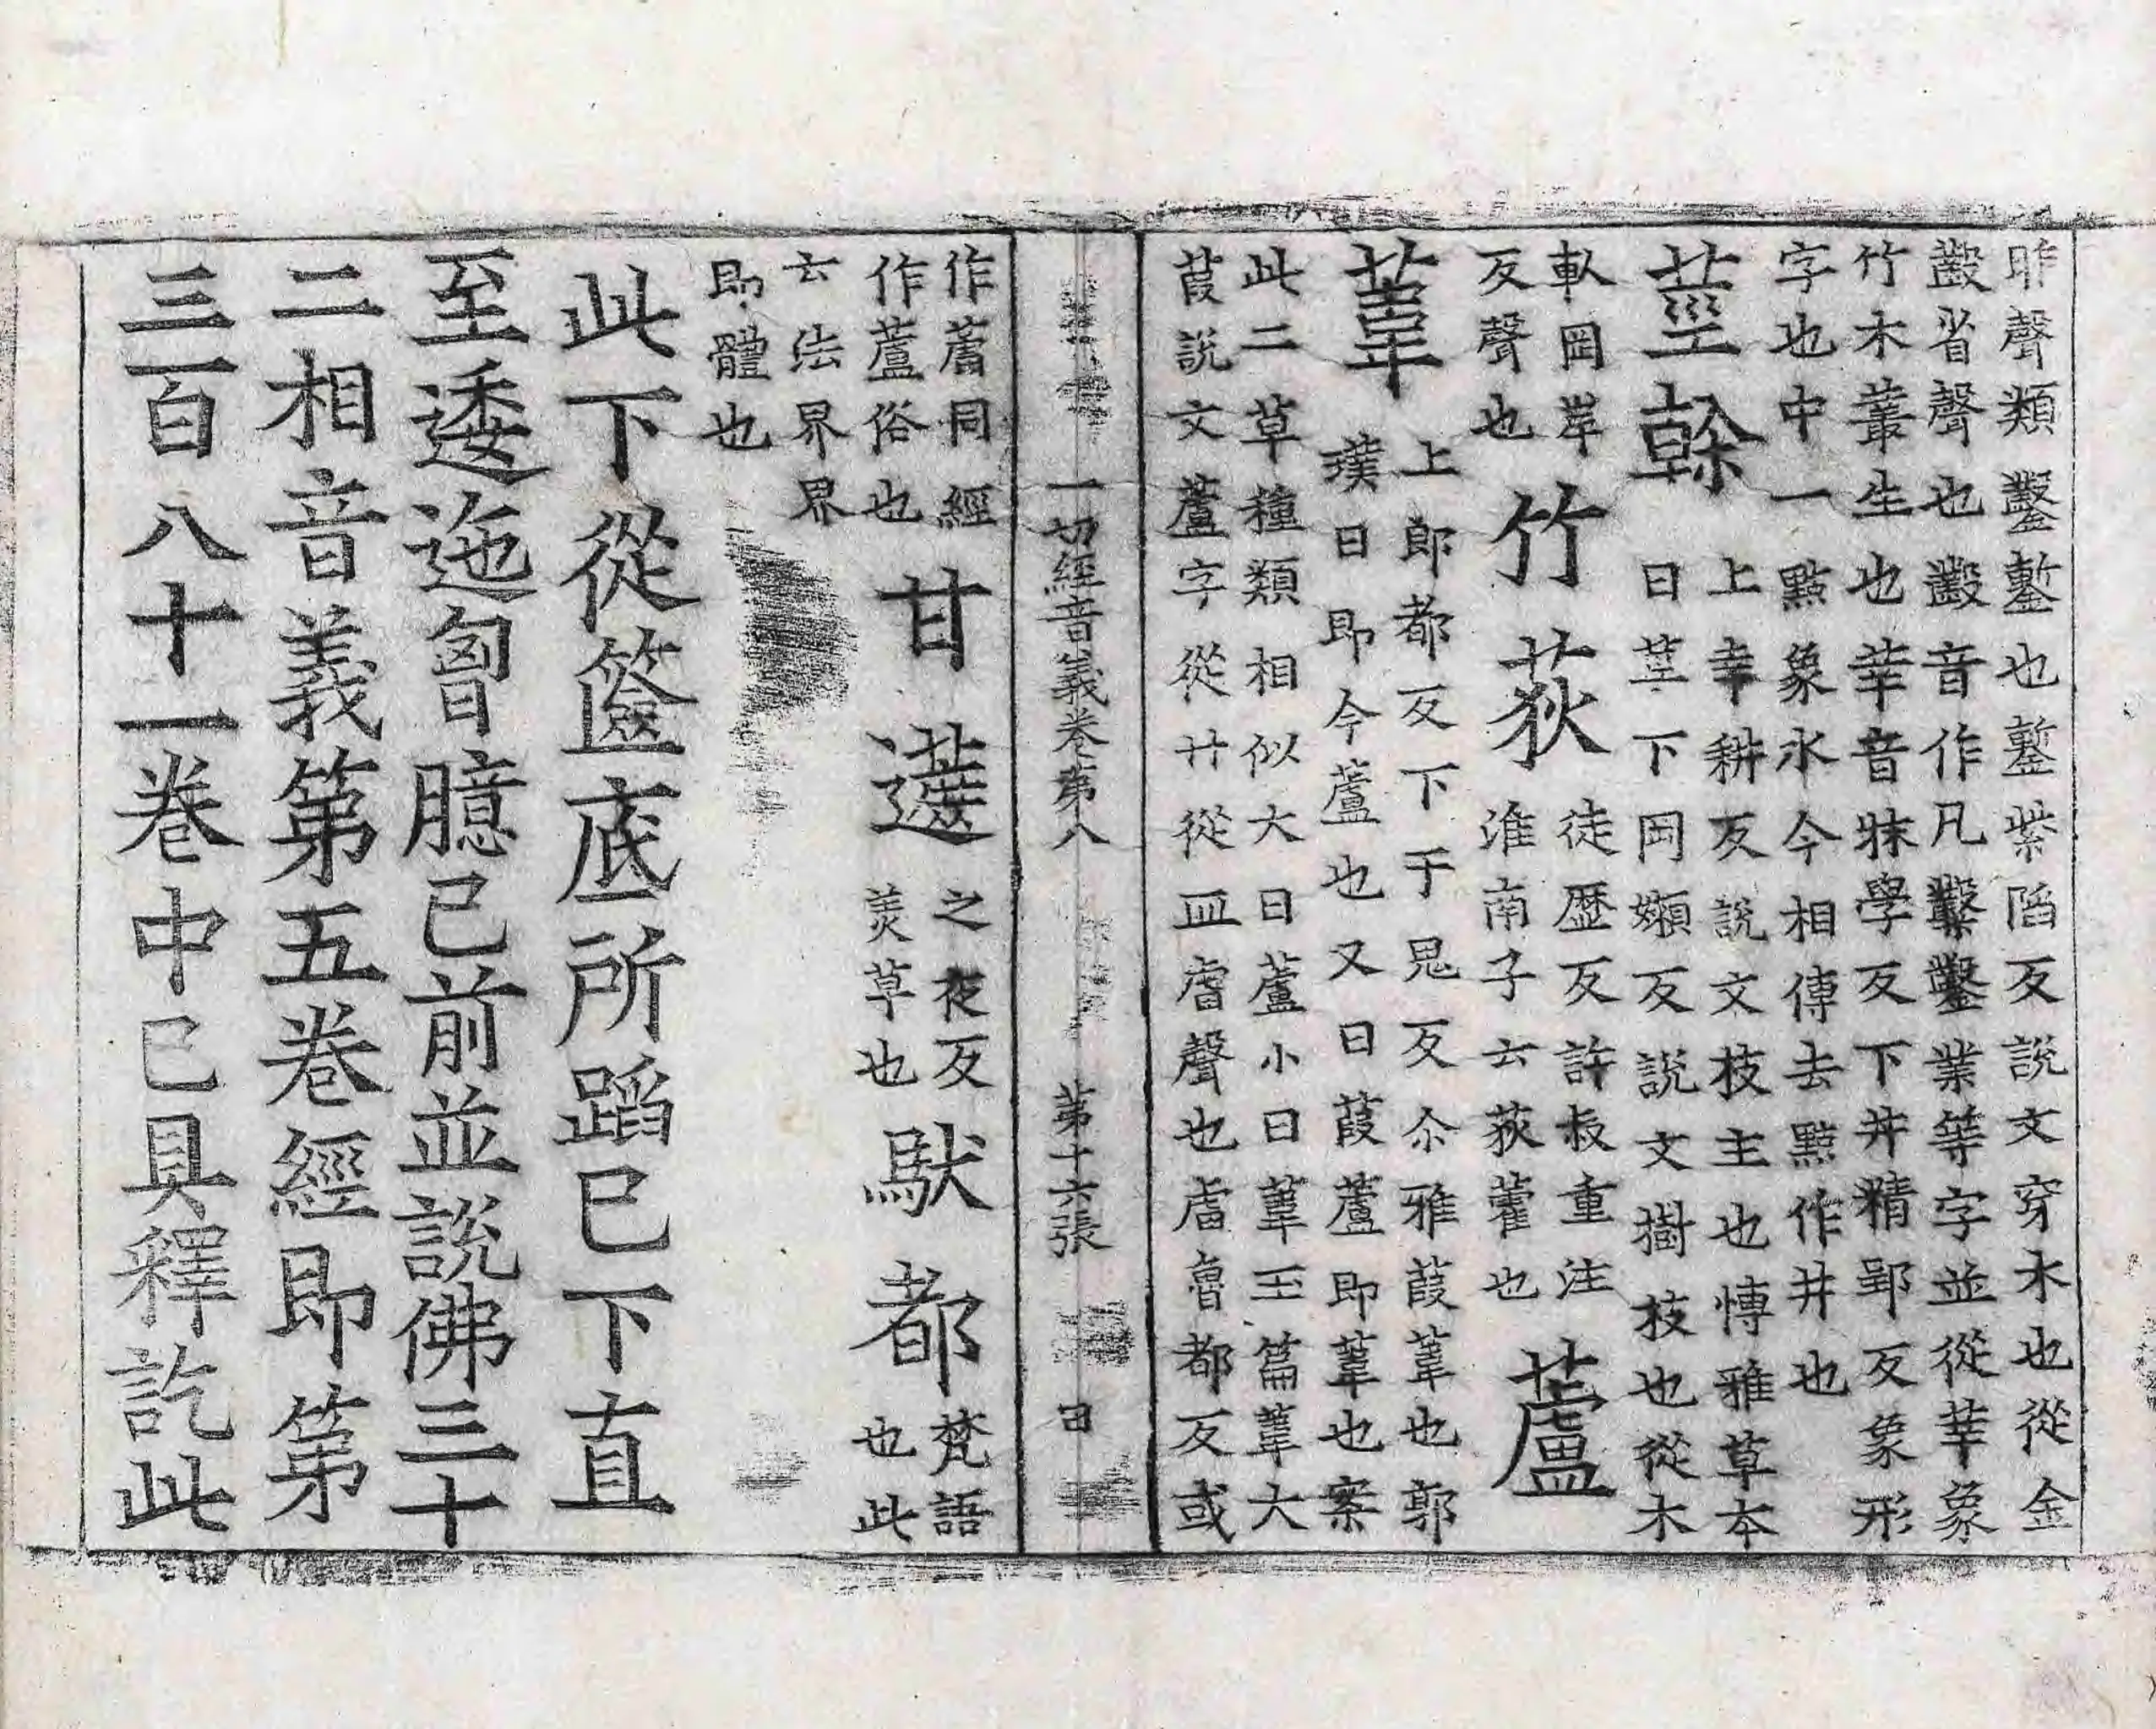 昨聲類鑿鏨也鏨柴滔反說文穿木也從金
省聲也音作凡鑿業等字並從丵象
竹木叢生也丵音牀學反下井精郢反象形
字也中一點象水今相傳去點作井也
莖幹上幸耕反說文枝主也博雅草本
曰莖下岡嬾反說文樹枝也從木
倝岡岸
反聲也
竹荻徒歷反許叔重注
淮南子云荻雚也
蘆
葦上郎都反下于鬼反尒雅葭葦也郭
璞曰即今蘆也又曰葭蘆即葦也案
此二草種類相似大曰蘆小曰葦玉篇葦大
葭說文蘆字從艹從皿虍聲也魯都反或
一切經音義卷第八 第十六張 田
作蘆同經
作蘆俗也
甘蔗之夜反
美草也
馱都梵語
也此
云法界界
即體也
此下從篋底所蹈已下直
至逶迤匈臆已前並說佛三十
二相音義第五卷經即第
三百八十一卷中已具釋訖此